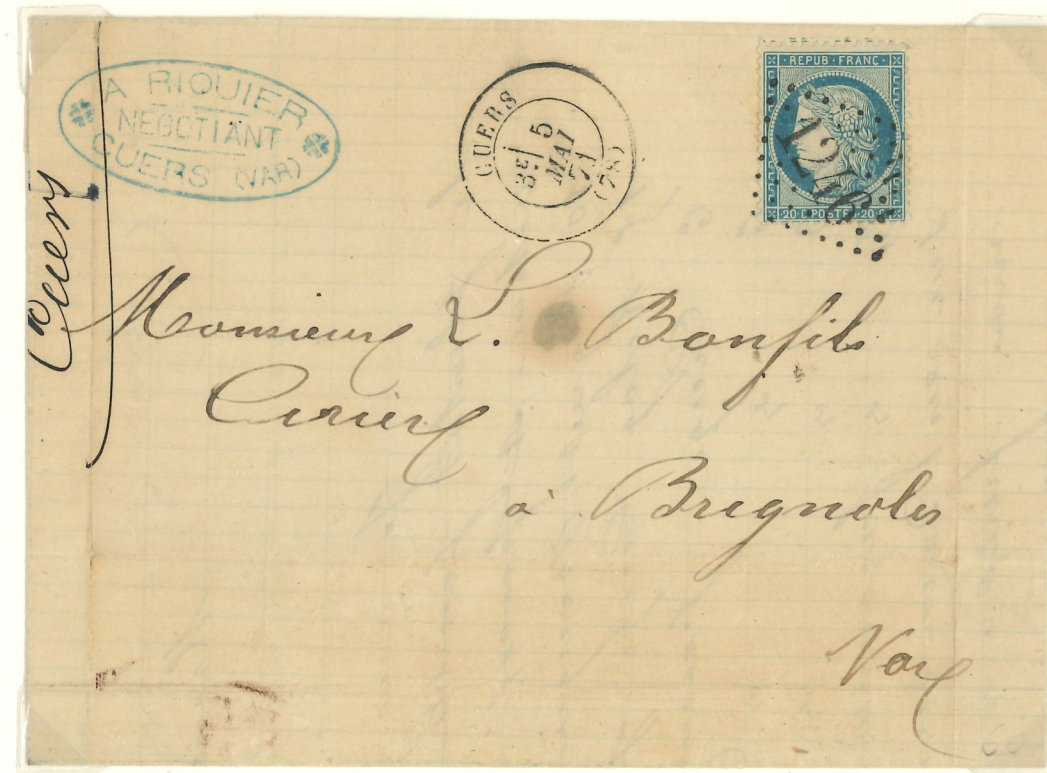 A RIQUIER
NEGOTIANT
CUERS (VAR)
CUERS
3E
5
MAI
71
(78)
REPUB FRANC
1246
20 C POSTES 20 C
Cuers
Monsieur L. Bonfils
Cirier
à Brignoles
Var